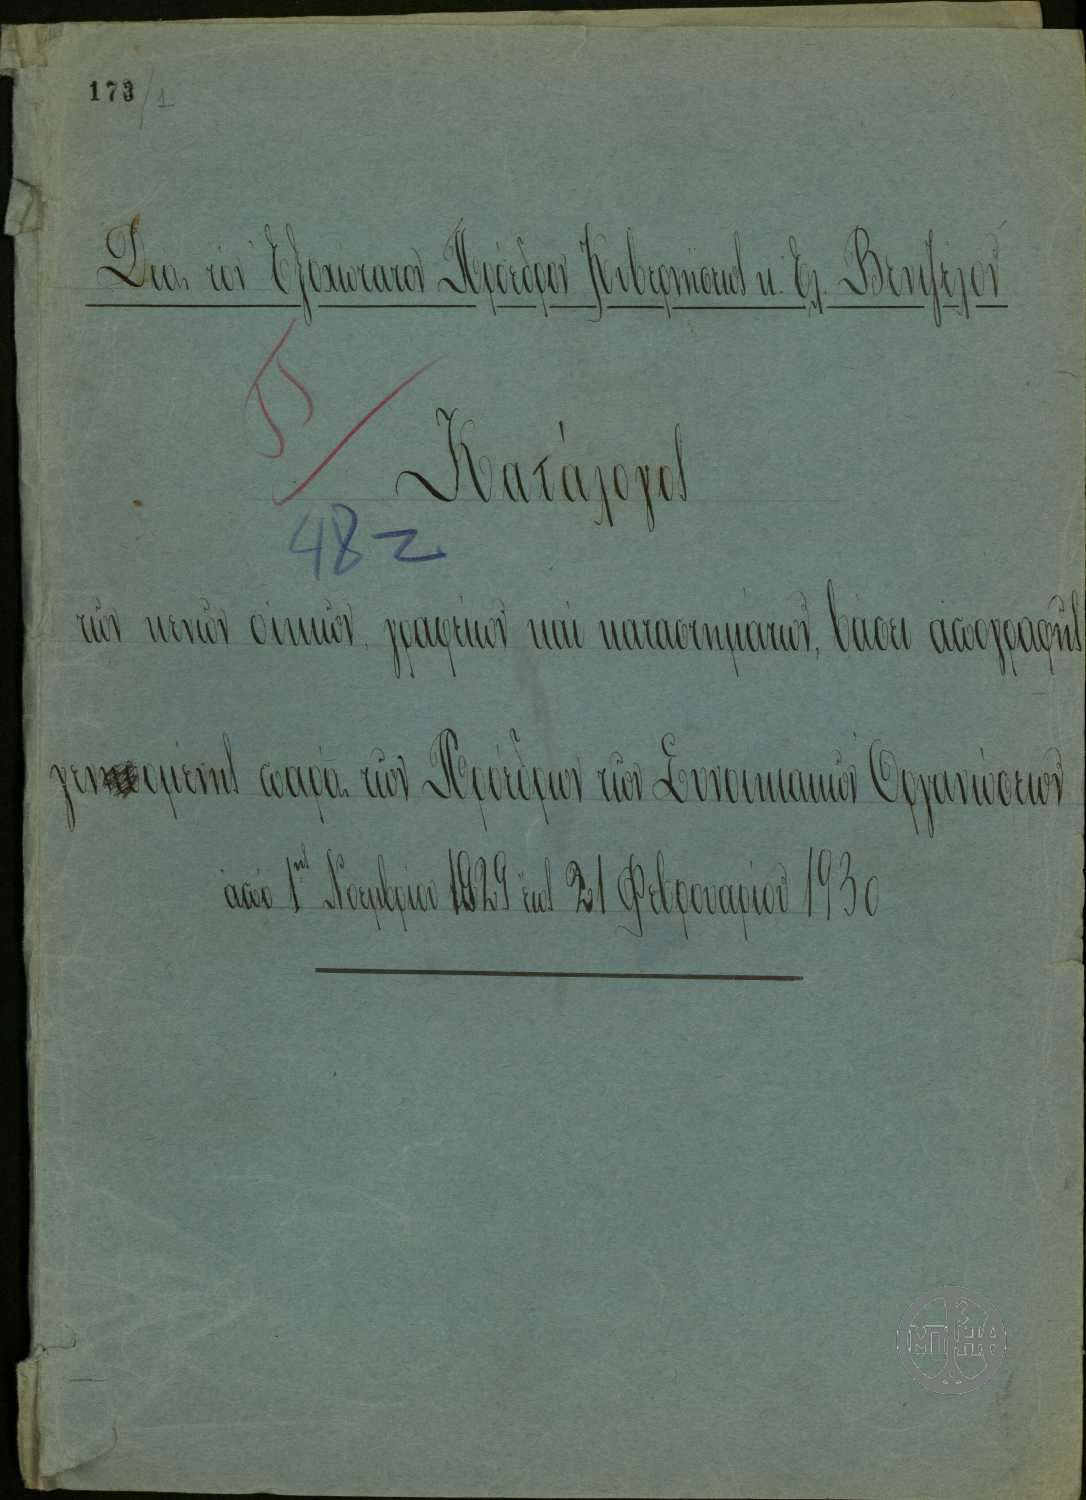 173/1
Δια τον Εξοχώτατον Πρόεδρον Κυβερνήσεως κ. Ελ. Βενιζέλον
Κατάλογος
48
των κενών οίκων, γραφείων καί καταστημάτων, βάσει απογραφής
γενομένης παρά των Προέδρων των Συνοικιακών Οργανώσεων
από 1ης Νοεμβρίου 1929 έως 21 Φεβρουαρίου 1930